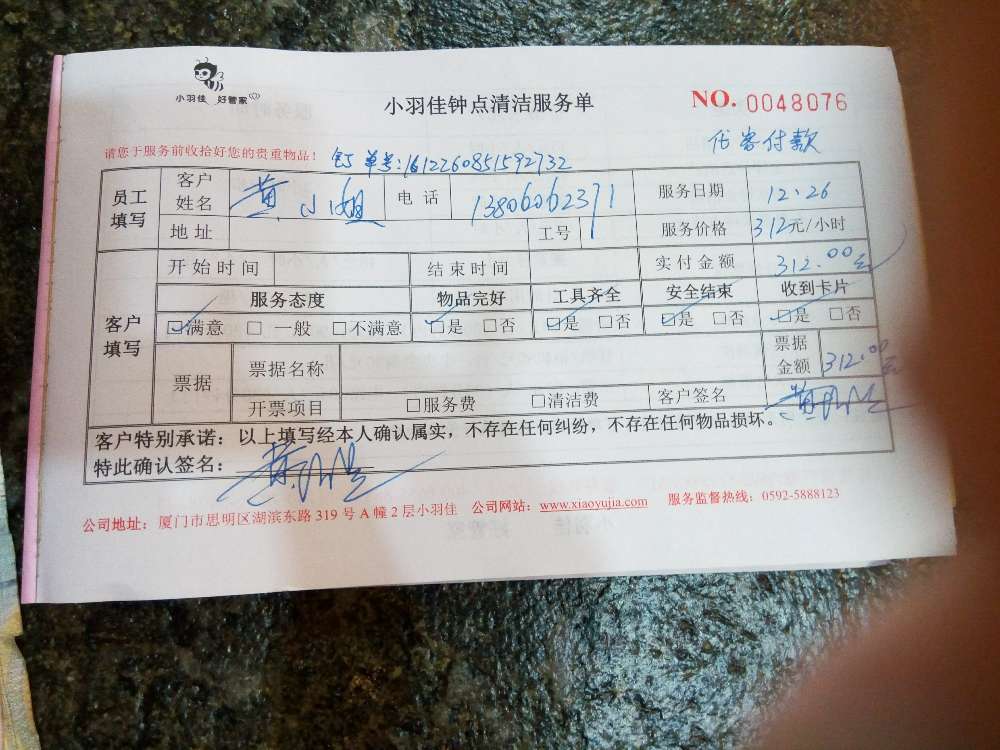 小羽佳 好管家
小羽佳钟点清洁服务单
NO. 0048076
代客付款
请您于服务前收拾好您的贵重物品！ 订单号:1612260851592732
员工填写 客户姓名 黄小姐 电话 13806062371 服务日期 12.26
地址 工号 服务价格 312元/小时
客户填写 开始时间 结束时间 实付金额 312.00元
服务态度 物品完好 工具齐全 安全结束 收到卡片
☑满意 □一般 □不满意 ☑是 □否 ☑是 □否 ☑是 □否 ☑是 □否
票据 票据名称 票据金额 312.00元
开票项目 □服务费 □清洁费 客户签名
客户特别承诺：以上填写经本人确认属实，不存在任何纠纷，不存在任何物品损坏。
特此确认签名：
公司地址：厦门市思明区湖滨东路319号A幢2层小羽佳 公司网站：www.xiaoyujia.com 服务监督热线：0592-5888123